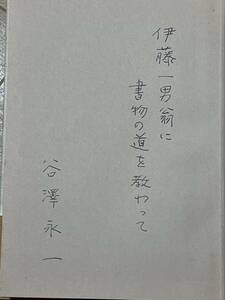 伊藤一男翁に
書物の道を教わって
谷澤永一